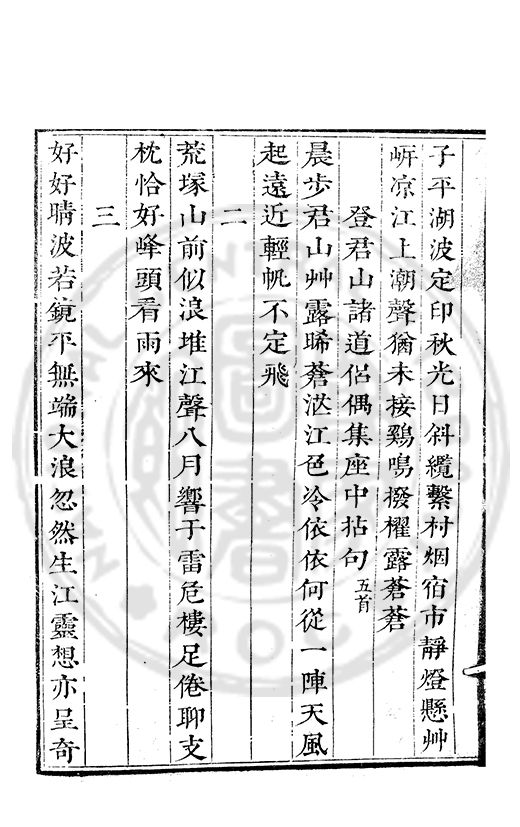 子平湖波定印秋光日斜纜繫村烟宿市靜燈懸艸
㟁凉江上潮聲猶未接鷄鳴撥櫂露蒼蒼
登君山諸道侶偶集座中拈句五首
晨步君山艸露晞蒼茫江色冷依依何從一陣天風
起遠近輕帆不定飛
二
荒塚山前似浪堆江聲八月響于雷危樓足倦聊支
枕恰好峰頭看雨來
三
好好晴波若鏡平無端大浪忽然生江靈想亦呈奇